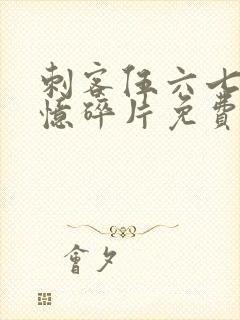 刺客伍六七
憶碎片免費
會夕